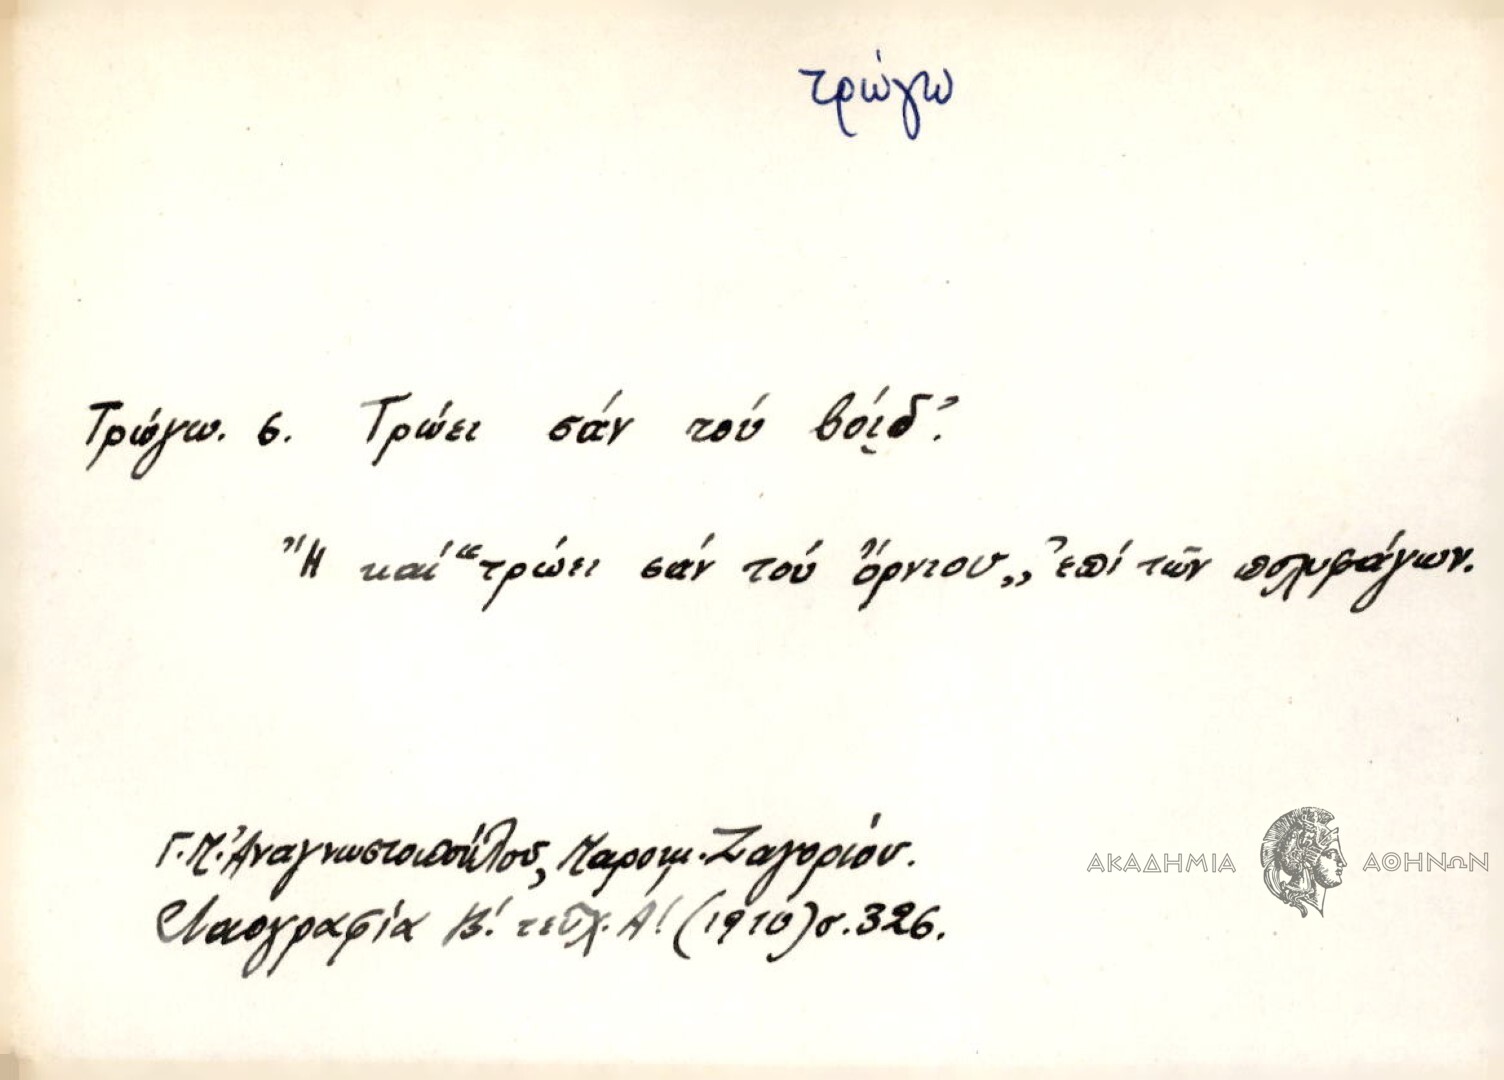 τρώγω
Τρώγω. 6. Τρώει σάν τού βόϊδ'.
Ἤ καί "τρώει σάν τού ὄρνιου,, ἐπί τῶν πολυφάγων.
Γ. Π. Ἀναγνωστοπούλου, Παροιμ. Ζαγορίου.
Λαογραφία Β! τεῦχ. Α! (1910) σ. 326.
ΑΚΑΔΗΜΙΑ ΑΘΗΝΩΝ